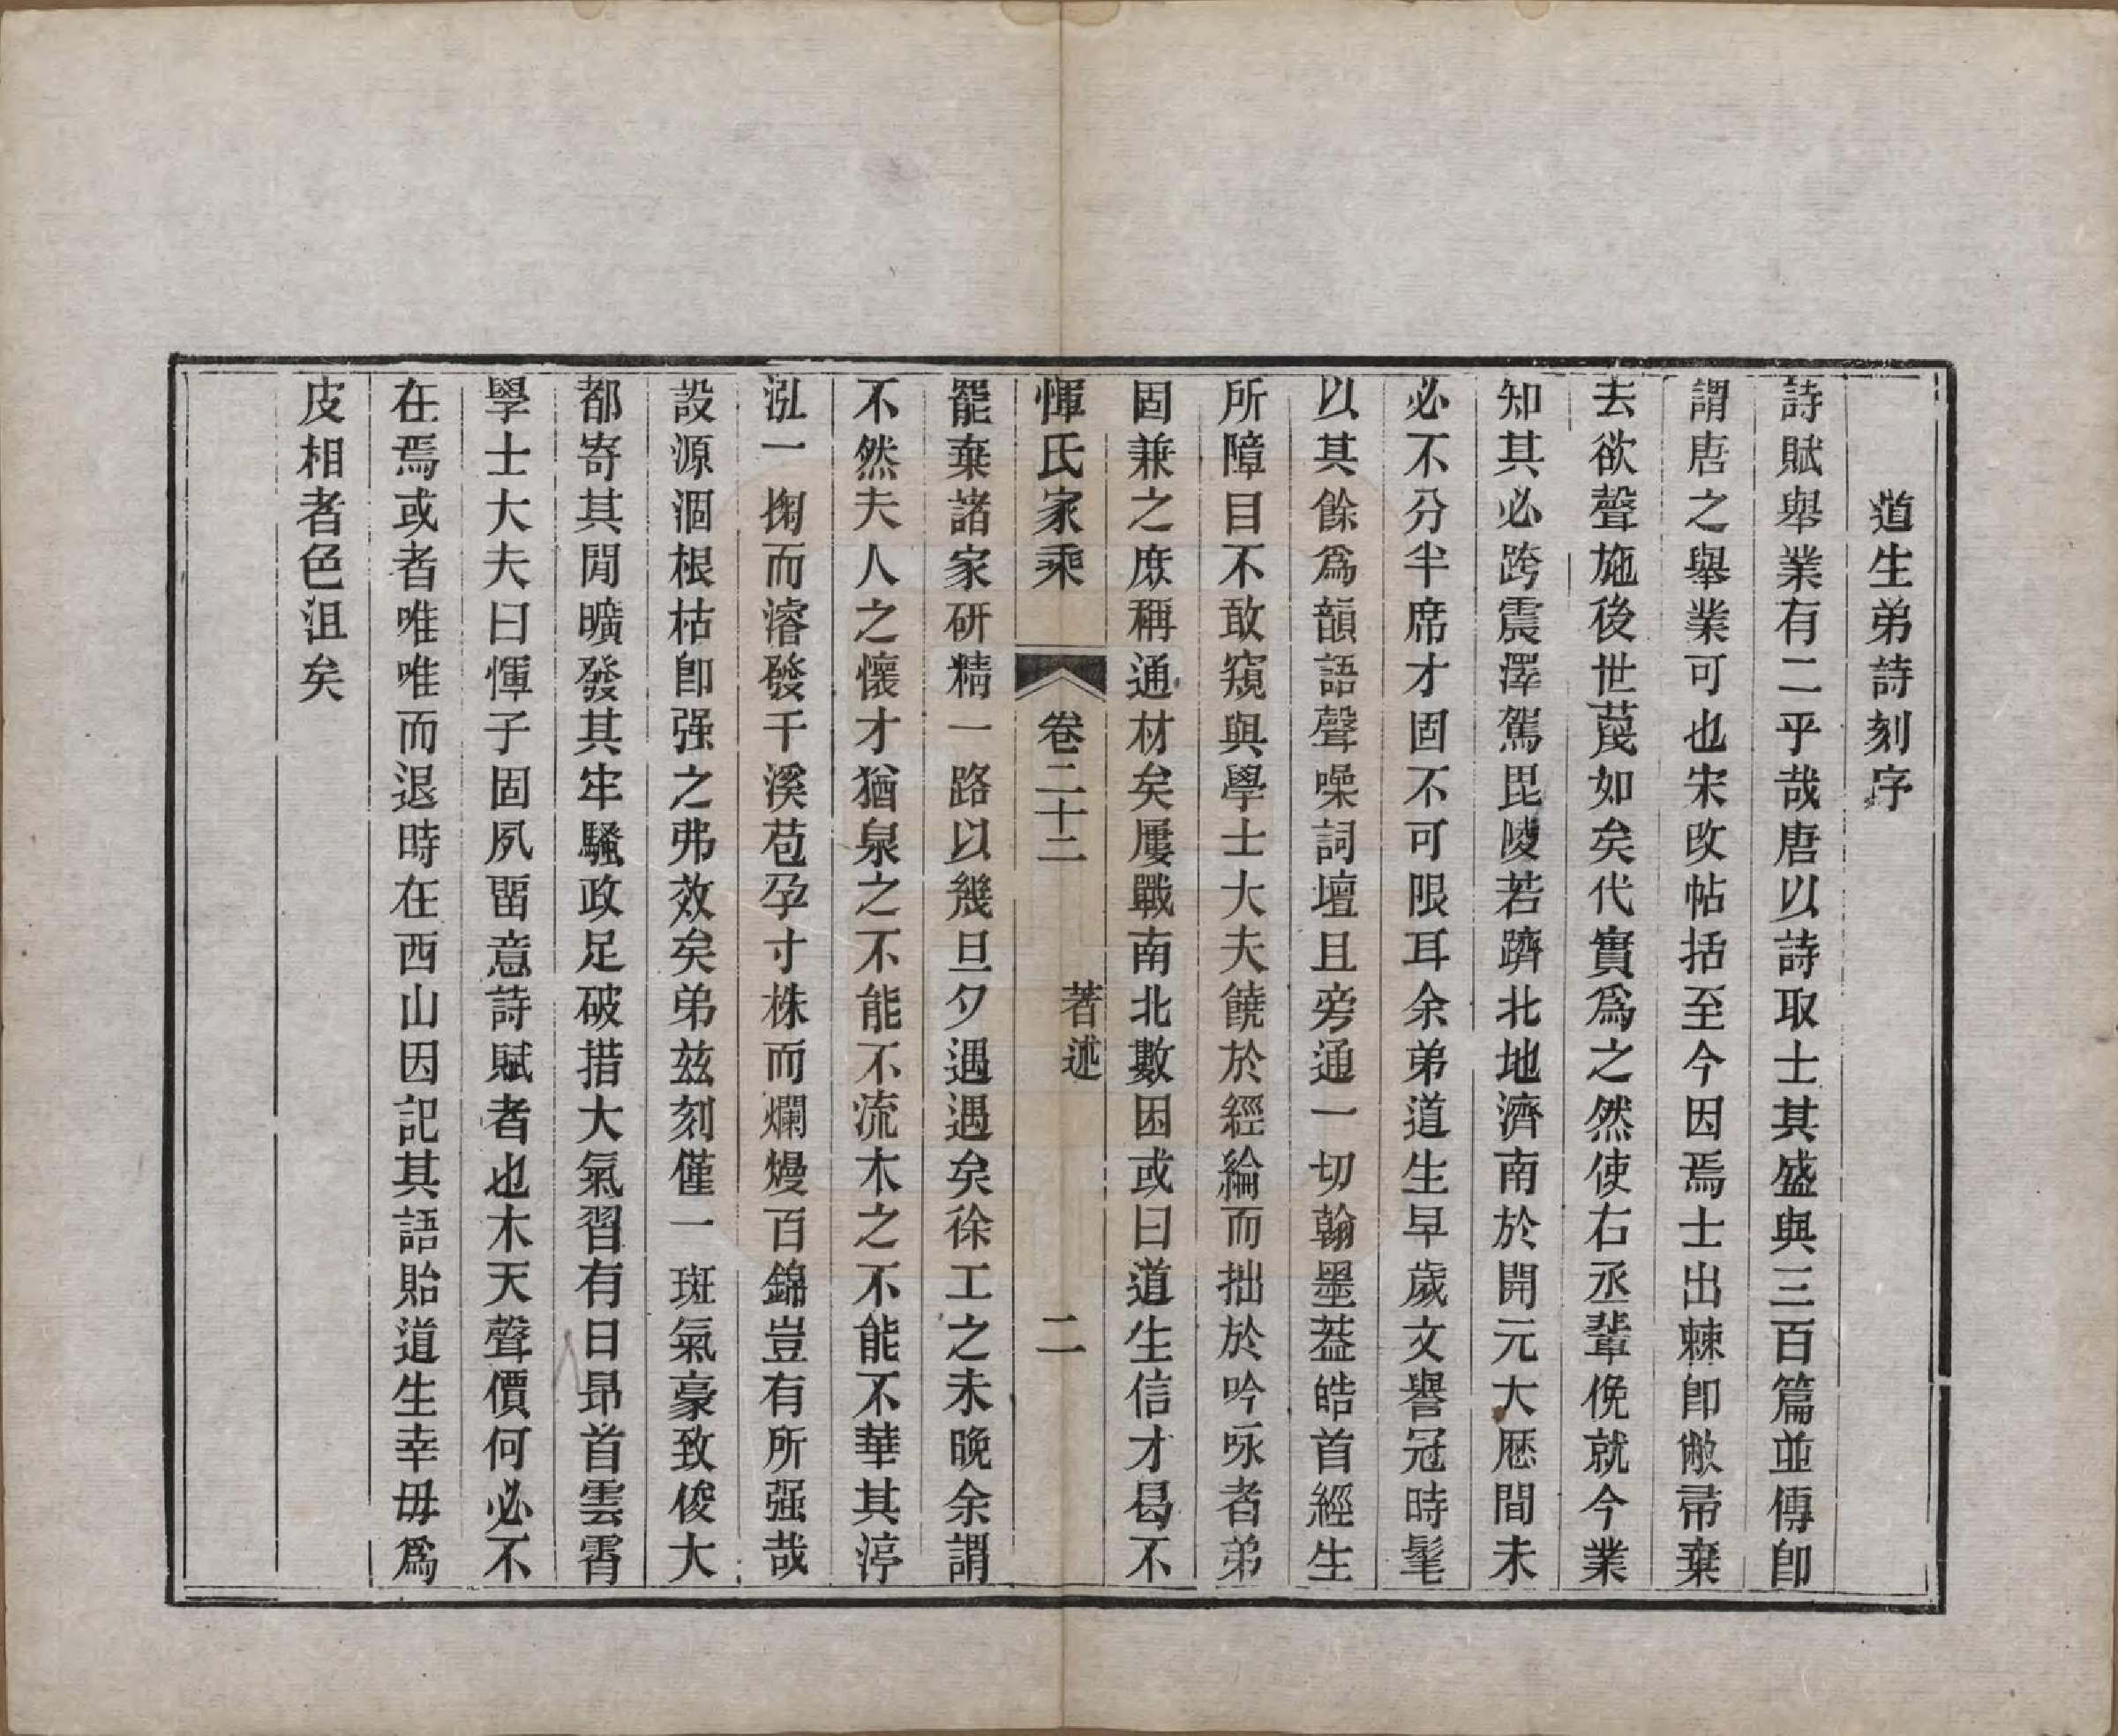 道生弟詩刻序
詩賦舉業有二乎哉唐以詩取士其盛與三百篇並傳卽
謂唐之舉業可也宋攺帖括至今因焉士出棘卽敝帚棄
去欲聲施後世蔑如矣代實爲之然使右丞輩俛就今業
知其必跨震澤駕毘陵若躋北地濟南於開元大厯間未
必不分半席才固不可限耳余弟道生早歲文譽冠時髦
以其餘爲韻語聲噪詞壇且旁通一切翰墨葢皓首經生
所障目不敢窺與學士大夫饒於經綸而拙於吟咏者弟
固兼之庶稱通材矣屢戰南北數困或曰道生信才曷不
惲氏家乘　卷二十二　著述　二
罷棄諸家研精一路以幾旦夕遇遇矣徐工之未晚余謂
不然夫人之懷才猶泉之不能不流木之不能不華其渟
泓一掬而濬發千溪苞孕寸株而爛熳百錦豈有所强哉
設源涸根枯卽强之弗效矣弟兹刻僅一斑氣豪致俊大
都寄其閒曠發其牢騷政足破措大氣習有日昂首雲霄
學士大夫曰惲子固夙畱意詩賦者也木天聲價何必不
在焉或者唯唯而退時在西山因記其語貽道生幸毋爲
皮相者色沮矣